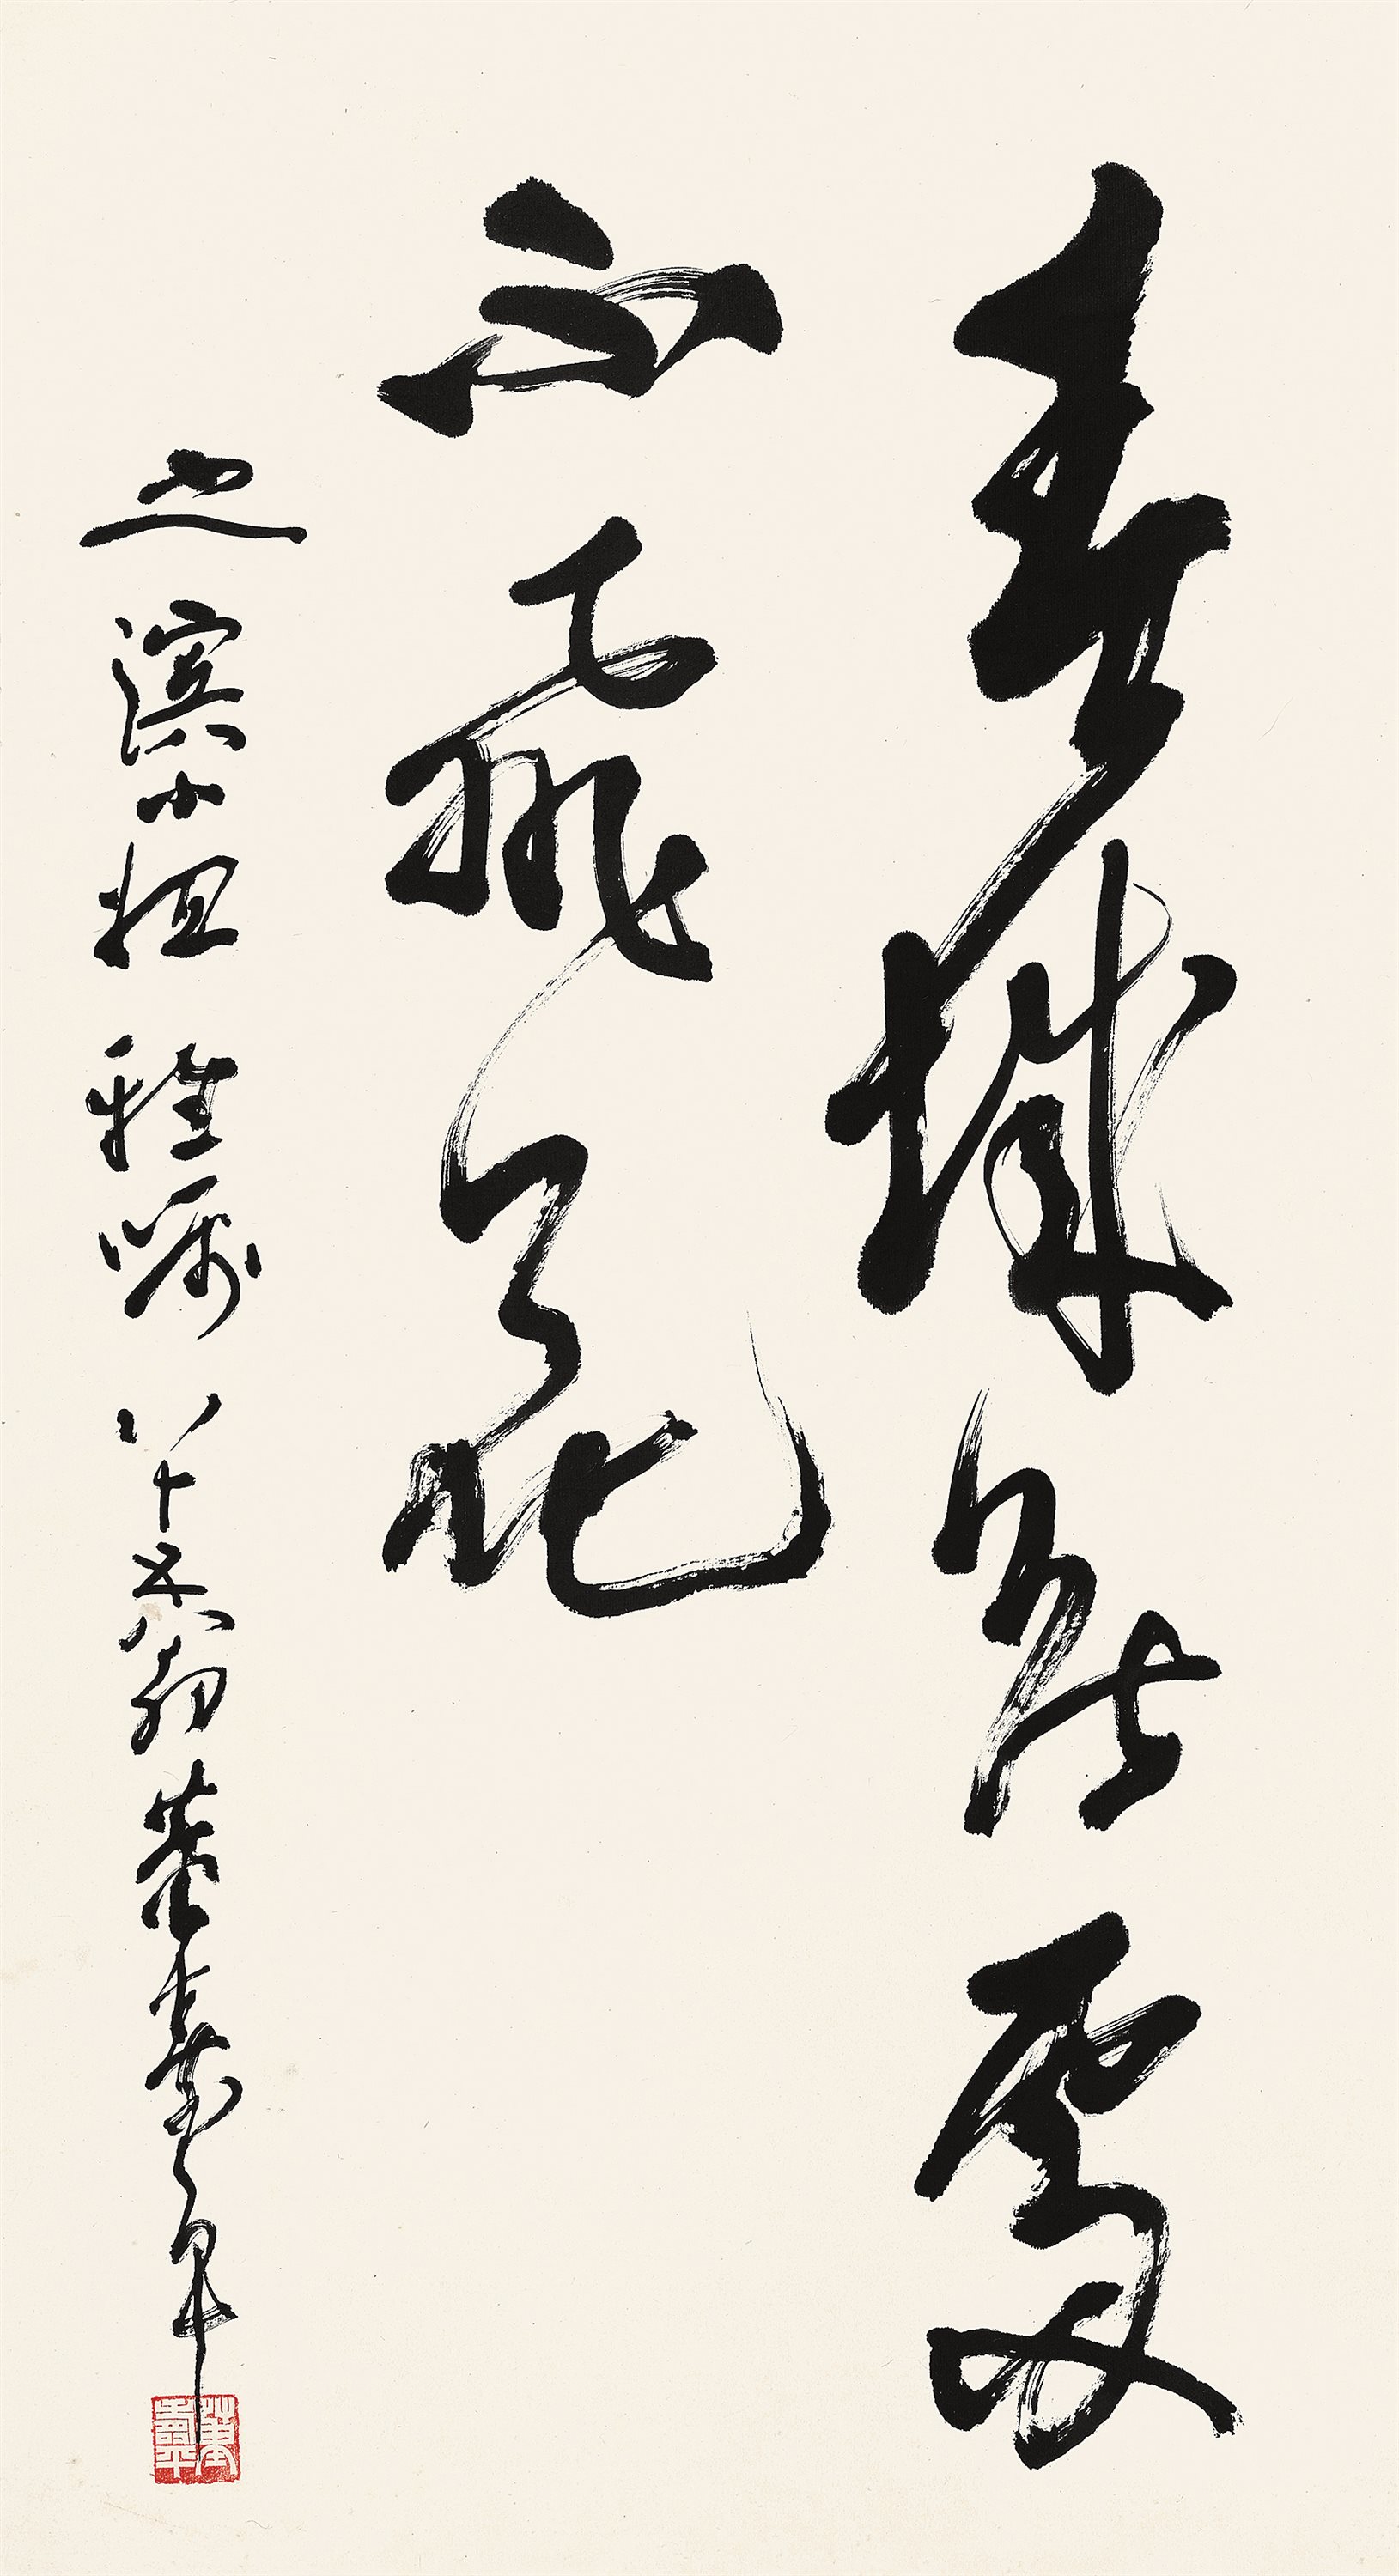 春城無處
不飛花
之濱小姐雅囑八十五翁董壽平
董壽平